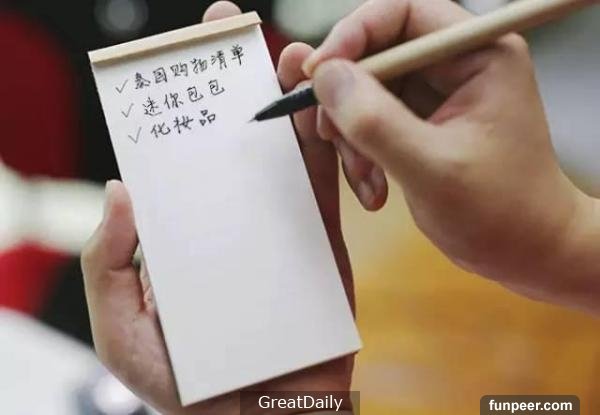 ✓泰国购物清单
✓迷你包包
✓化妆品
GreatDaily
funpeer.com